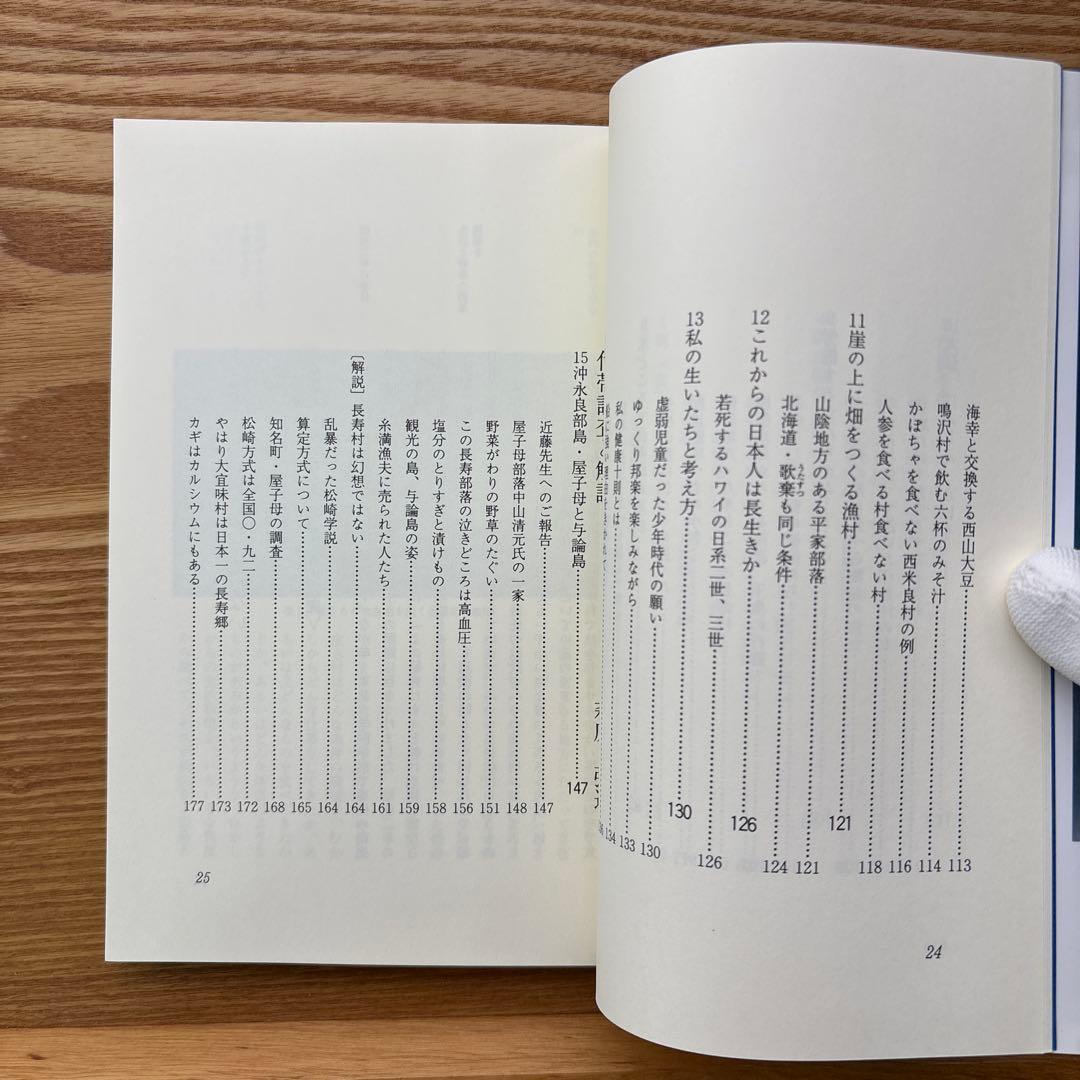 海幸と交換する西山大豆……113
鳴沢村で飲む六杯のみそ汁……114
かぼちゃを食べない西米良村の例……116
人参を食べる村食べない村……118
11 崖の上に畑をつくる漁村……121
山陰地方のある平家部落……121
北海道・歌棄も同じ条件……124
うたすつ
12 これからの日本人は長生きか……126
若死するハワイの日系二世、三世……126
13 私の生いたちと考え方……130
虚弱児童だった少年時代の願い……130
ゆっくり邦楽を楽しみながら……133
私の健康十則とは……134
24
15 沖永良部島・屋子母と与論島……147
近藤先生へのご報告……147
屋子母部落中山清元氏の一家……148
野菜がわりの野草のたぐい……151
この長寿部落の泣きどころは高血圧……156
塩分のとりすぎと漬けもの……158
観光の島、与論島の姿……159
糸満漁夫に売られた人たち……161
〔解説〕長寿村は幻想ではない……164
乱暴だった松崎学説……164
算定方式について……165
知名町・屋子母の調査……168
松崎方式は全国〇・九二……172
やはり大宜味村は日本一の長寿郷……173
カギはカルシウムにもある……177
25